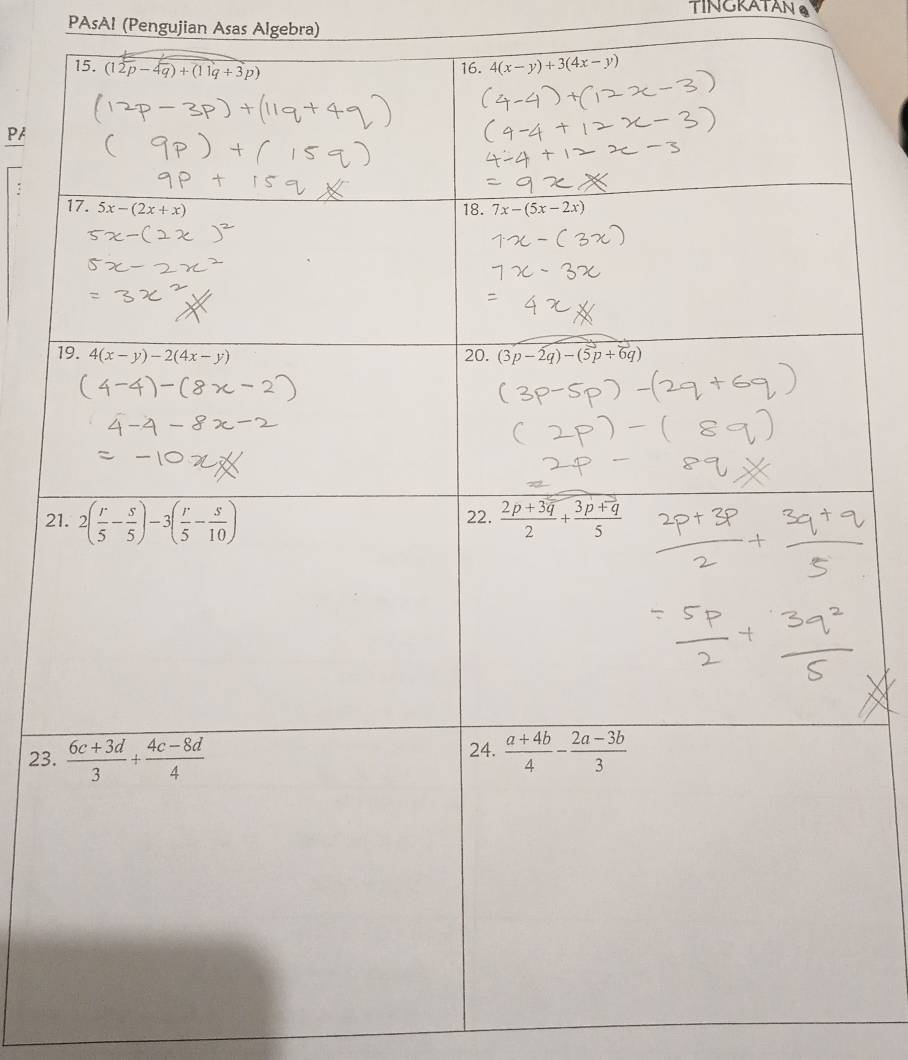 TINGKATAN
PAsAl (Pengujian Asas Algebra)
PA
:
15. (12p − 4q) + (11q + 3p)
(12p − 3p) + (11q + 4q)
( 9p ) + ( 15q )
9p + 15q
16. 4(x − y) + 3(4x − y)
(4−4) + (12x − 3)
(4−4 + 12x − 3)
4−4 + 12x − 3
= 9x
17. 5x − (2x + x)
5x − (2x )²
5x − 2x²
= 3x²
18. 7x − (5x − 2x)
7x − (3x)
7x − 3x
= 4x
19. 4(x − y) − 2(4x − y)
(4−4) − (8x − 2)
4−4 − 8x − 2
= −10x
20. (3p − 2q) − (5p + 6q)
(3p − 5p) − (2q + 6q)
( 2p ) − ( 8q )
= 2p − 8q
21. 2(r/5 − s/5) − 3(r/5 − s/10)
22. (2p + 3q)/2 + (3p + q)/5
(2p + 3p)/2 + (3q + q)/5
= 5p/2 + 3q²/5
23. (6c + 3d)/3 + (4c − 8d)/4
24. (a + 4b)/4 − (2a − 3b)/3